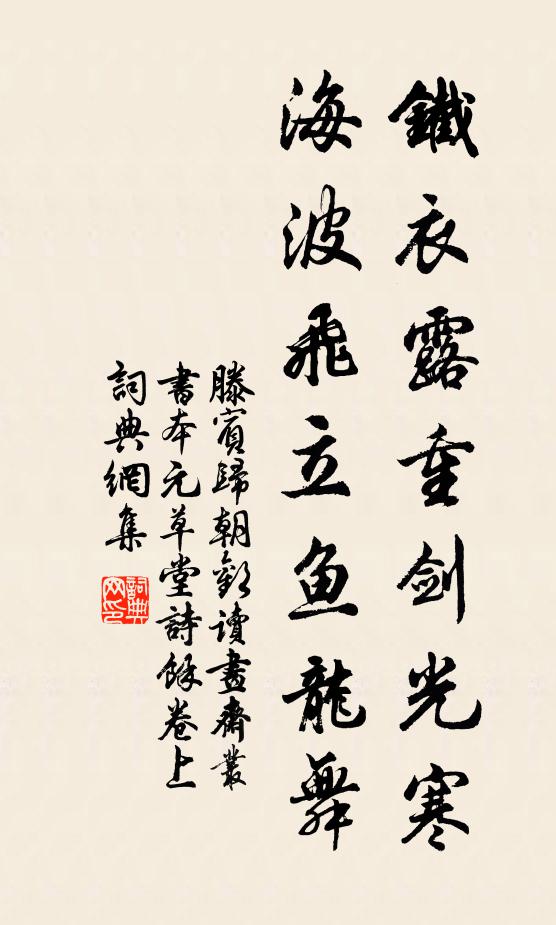 鐵衣露重劍光寒
海波飛立魚龍舞
滕賓歸朝歡讀畫齋叢
書本元草堂詩餘卷上
詞典網集
詞典網印